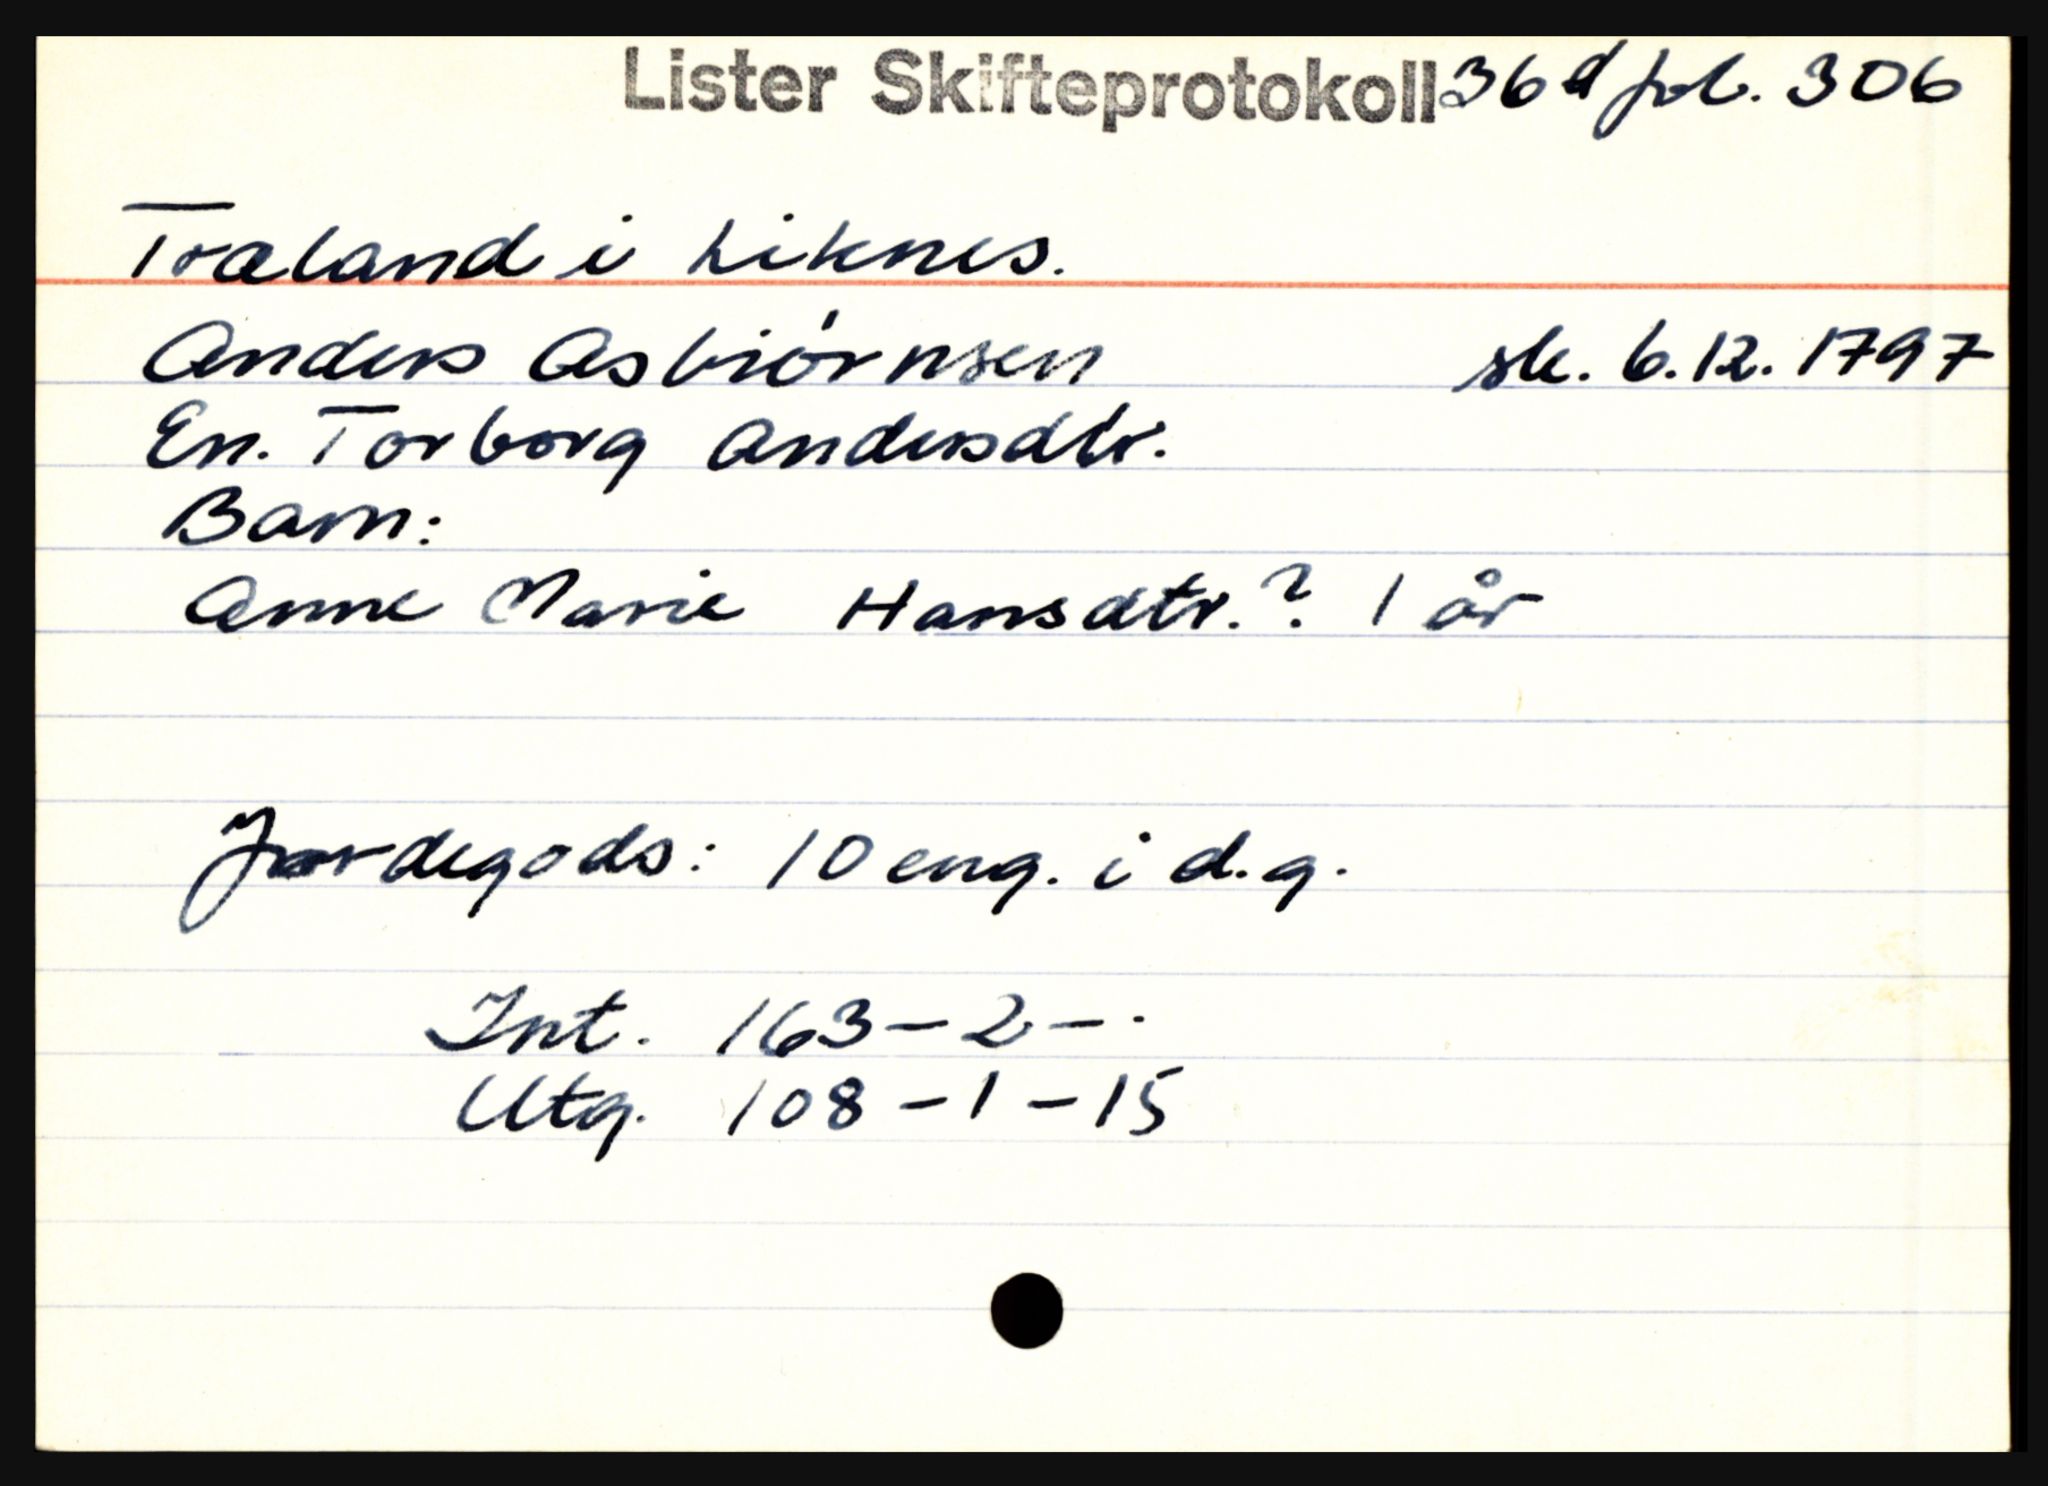 Lister Skifteprotokoll 36d fol. 306
Træland i Liknes.
Anders Asbiørnsen sk. 6.12. 1797
En. Torborg Andersdtr.
Barn:
Anne Marie Hansdtr.? 1 år
Jordegods: 10 eng. i d.g.
Int. 163 - 2 - .
Utg. 108 - 1 - 15